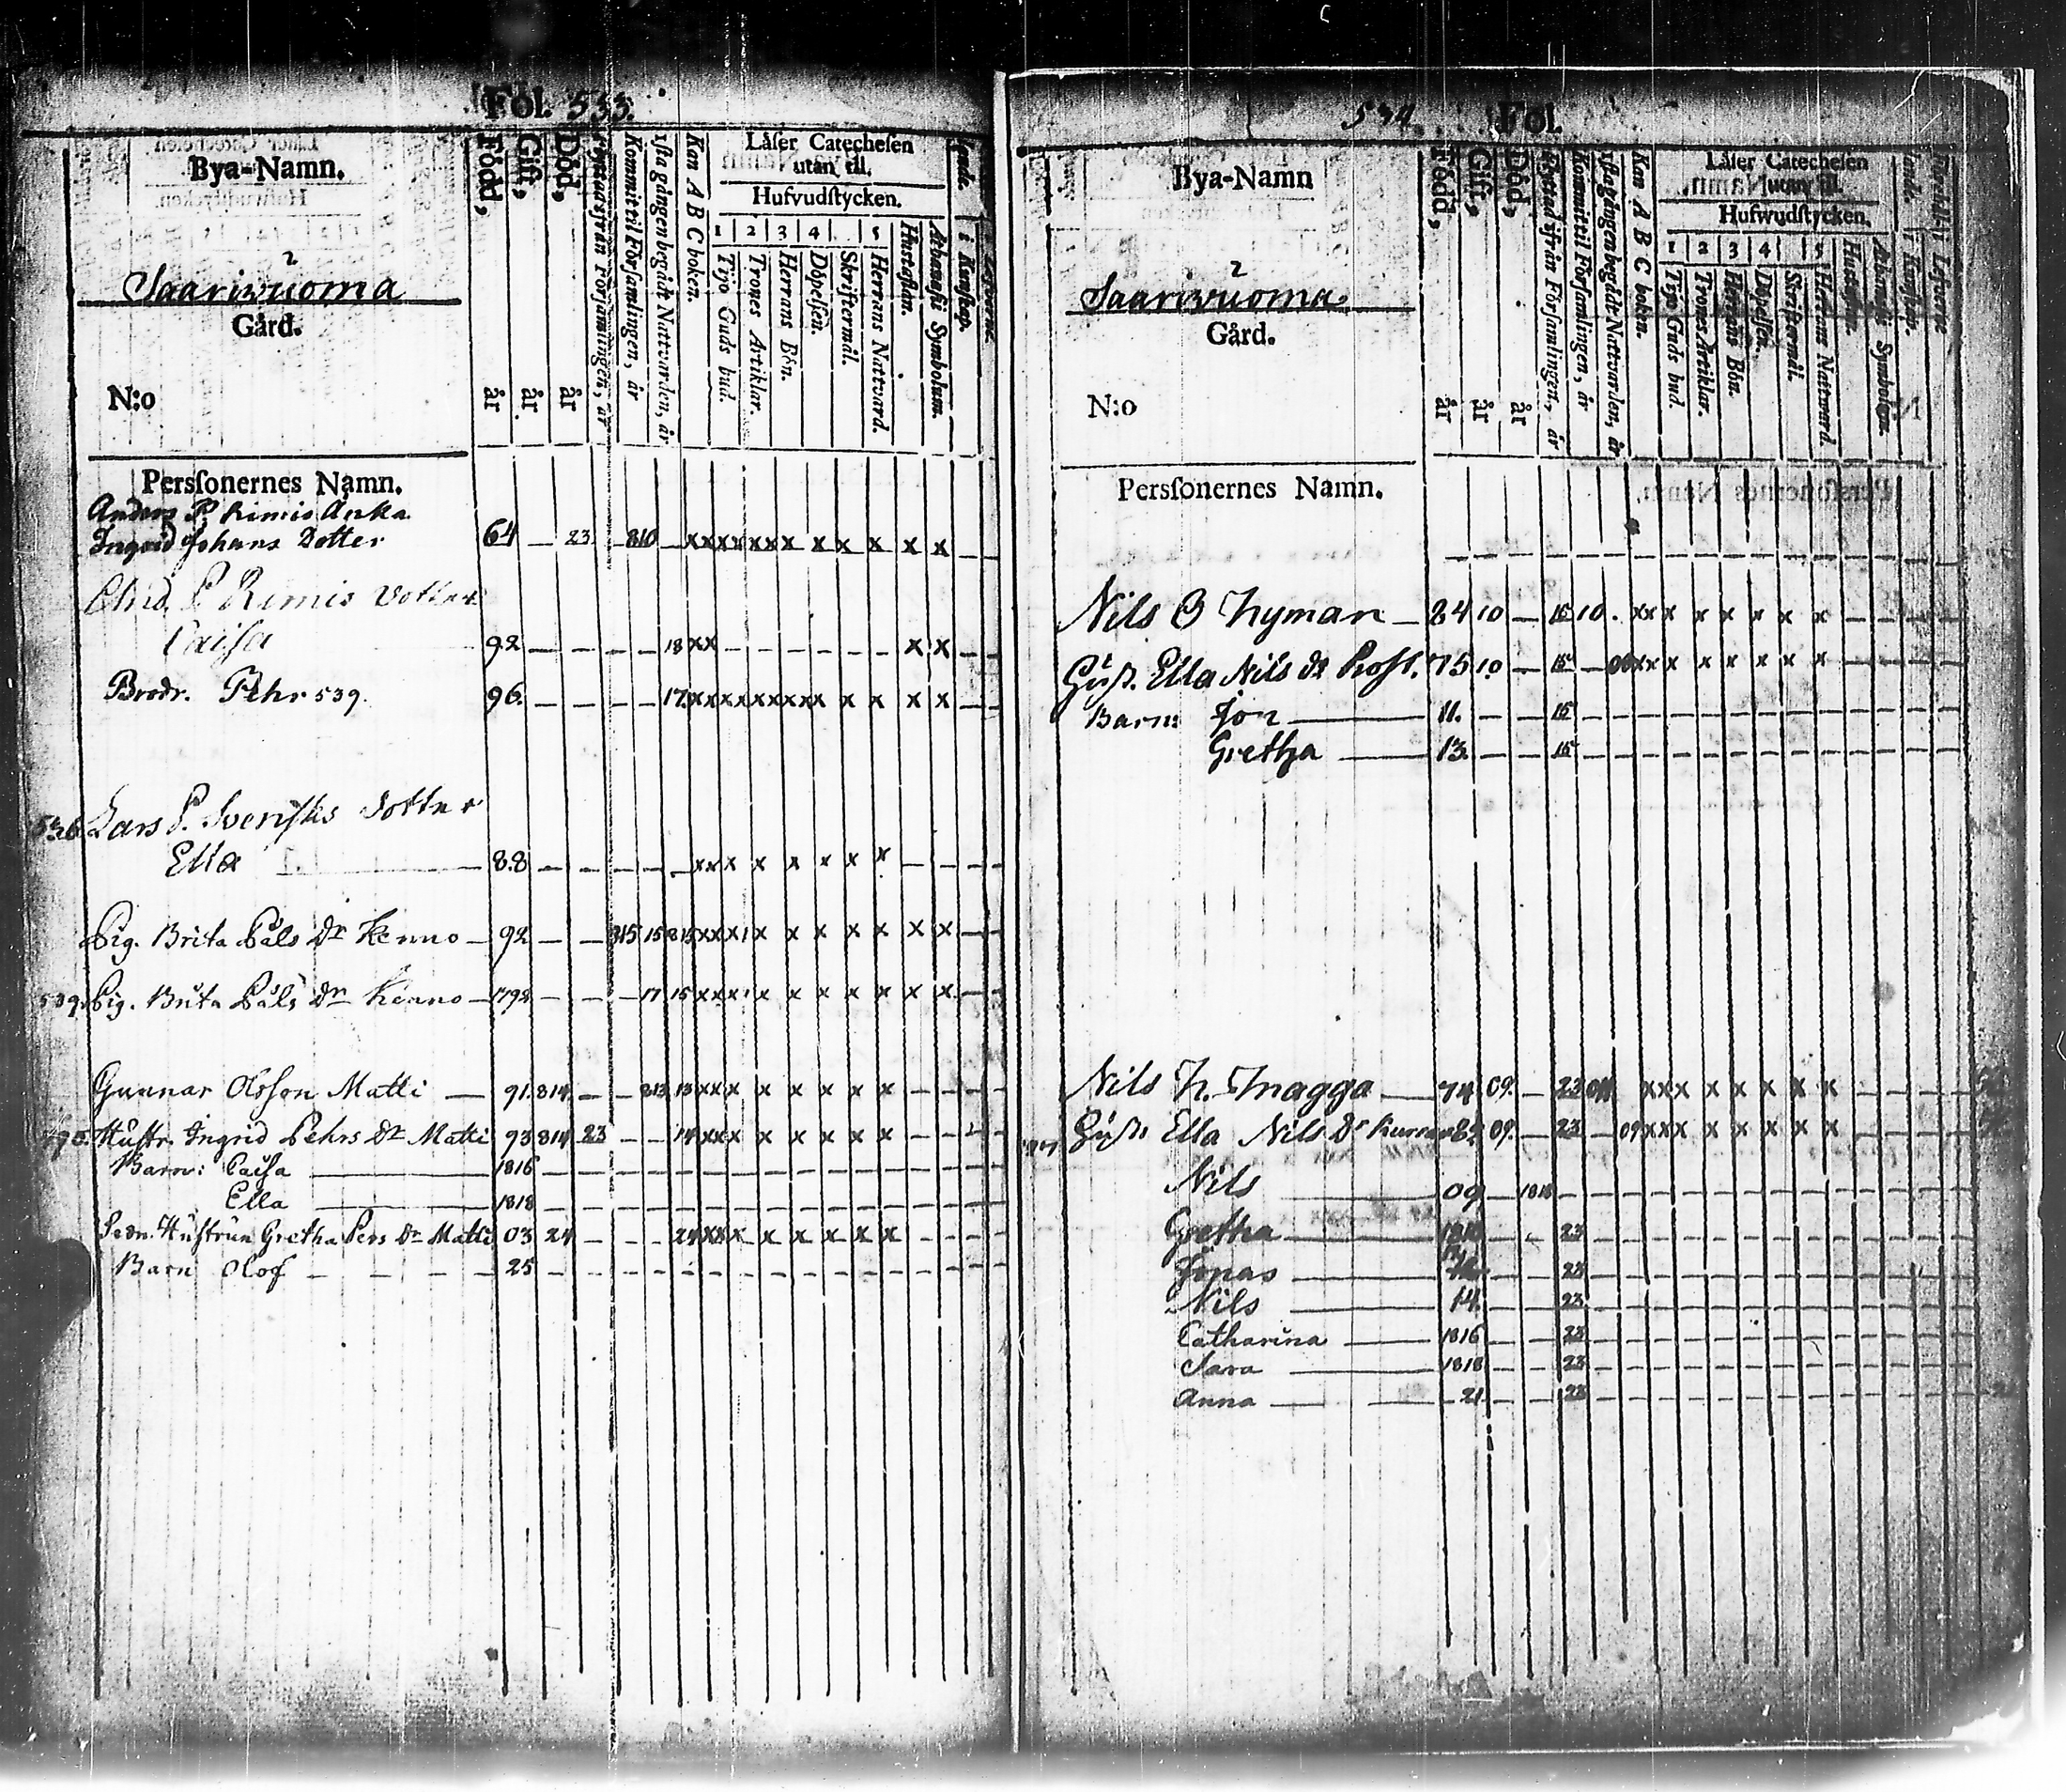 Fol. 533.
Bya-Namn.
2
Saariwuoma
Gård.
N:o
Född, år
Gift, år
Död, år
Kommit til Församlingen, år
1sta gången begådt Nattvarden, år
Kan A B C boken.
Låser Catechesen
utan til.
Hufvudstycken.
1 2 3 4 5
Tijo Guds bud.
Trones Artiklar.
Herrans Bön.
Döpelsen.
Skriftermål.
Herrans Nattvard.
Hustaflan.
Athanasii Symbolum.
i Kunskap.
Personernes Namn.
Anders P. Rimis Änka
Ingrid Johans Dotter 64 — 23 — 810 — x x x x x x x x x x x x
And. P. Rimis Dotter
Caisa 92 — — — — 18 x x — — — — — — x x
Brodr. Pehr 539. 96. — — — — 17. x x x x x x x x x x x x x
536 Lars P. Svenskes Dotter
Ella 88 — — — — — x x x x x x x x — —
Pig. Brita Påls Dr Kenno — 92 — — 815 15 815 x x x x x x x x x x x
539. Pig. Brita Påls Dn Kenno — 1792 — — — 17 15 x x x x x x x x x x
Gunnar Olsson Matti — 91. 814 — — 813 13 x x x x x x x x — —
Hustr. Ingrid Pehrs Dr Matti 93 814 23 — — 14 x x x x x x x x — —
Barn: Caisa 1816
Ella 1818
Sedn. Hustrun Gretha Pers Dr Matti 03 24 — — — 24 x x x x x x x x
Barn Olof — — — — 25
534 Fol.
Bya-Namn
2
Saariwuoma
Gård.
N:o
Född, år
Gift, år
Död, år
Flyttad ifrån Församlingen, år
Kommit til Församlingen, år
1sta gången begådt Nattvarden, år
Kan A B C boken.
Låser Catechesen
utan til.
Hufwudstycken.
1 2 3 4 5
Tijo Guds bud.
Trones Artiklar.
Herrans Bön.
Döpelsen.
Skriftermål.
Herrans Nattward.
Hustaflan.
Athanasii Symbolum.
i Kunskap.
i Lefverne
Personernes Namn.
Nils O — 84 10 — 15 10. x x x x x x x x — —
Ella Nils Dr 75 10 — 15 — x x x x x x x x
Barn: Jon 11. — — 15
Gretha 13. — — 15
Nils N. Magga — 74 09. — 23 x x x x x x x x
Ella Nils Dr 09. — 23 — 09 x x x x x x x x
Nils 09 — 1818
Gretha — — 23
Jonas — — 23
Nils 14. — — 23
Catharina 1816 — — 23
Sara 1818 — — 23
Anna 21 — — 23